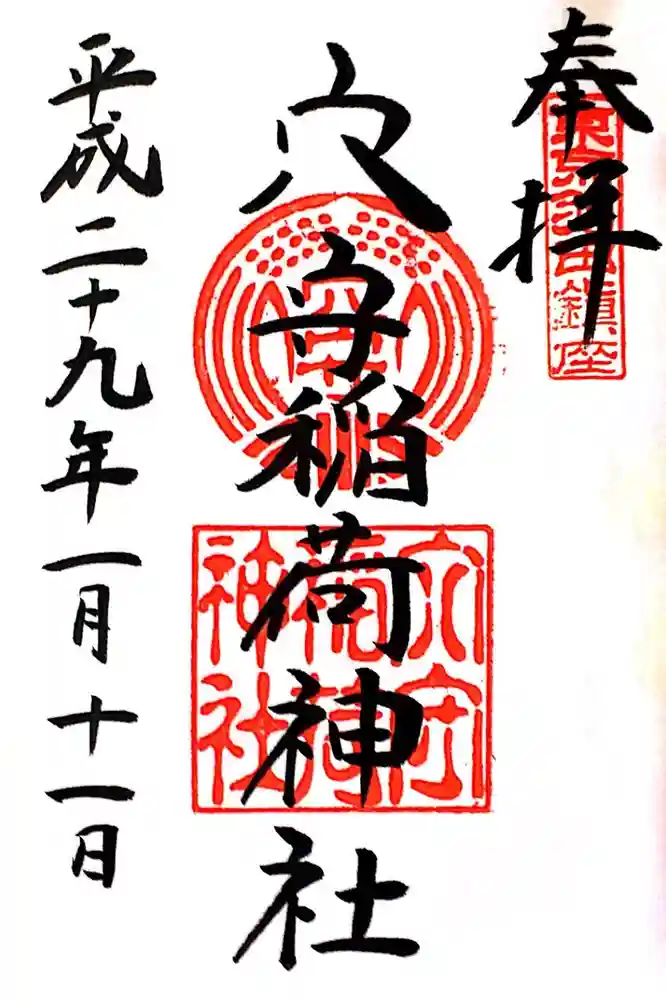 奉拝
東京羽田鎮座
穴守稲荷神社
穴守
稲荷
神社
平成二十九年一月十一日